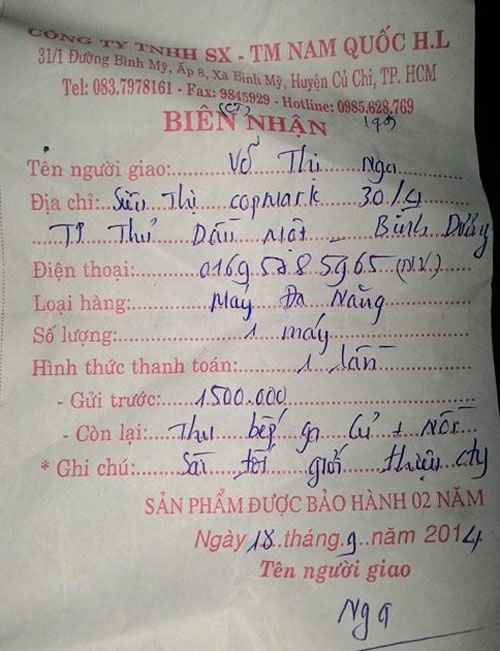 CÔNG TY TNHH SX - TM NAM QUỐC H.L
31/1 Đường Bình Mỹ, Ấp 8, Xa Bình Mỹ, Huyện Củ Chi, TP. HCM
Tel: 083.7978161 - Fax: 9845929 - Hotline: 0985.628.769
BIÊN NHẬN
(CT)
Tên người giao: Võ Thị Nga
Địa chỉ: Siêu Thị copmark 30/4
TP Thủ Dầu Một - Bình Dương
Điện thoại: 0169.578.5965 (N.V.)
Loại hàng: Máy Đa Năng
Số lượng: 1 máy
Hình thức thanh toán: 1 lần
- Gửi trước: 1500.000
- Còn lại: Thu bếp ga Củ + Nồi
* Ghi chú: Sài tốt giới thiệu cty
SẢN PHẨM ĐƯỢC BẢO HÀNH 02 NĂM
Ngày 18 tháng 9 năm 2014
Tên người giao
Nga